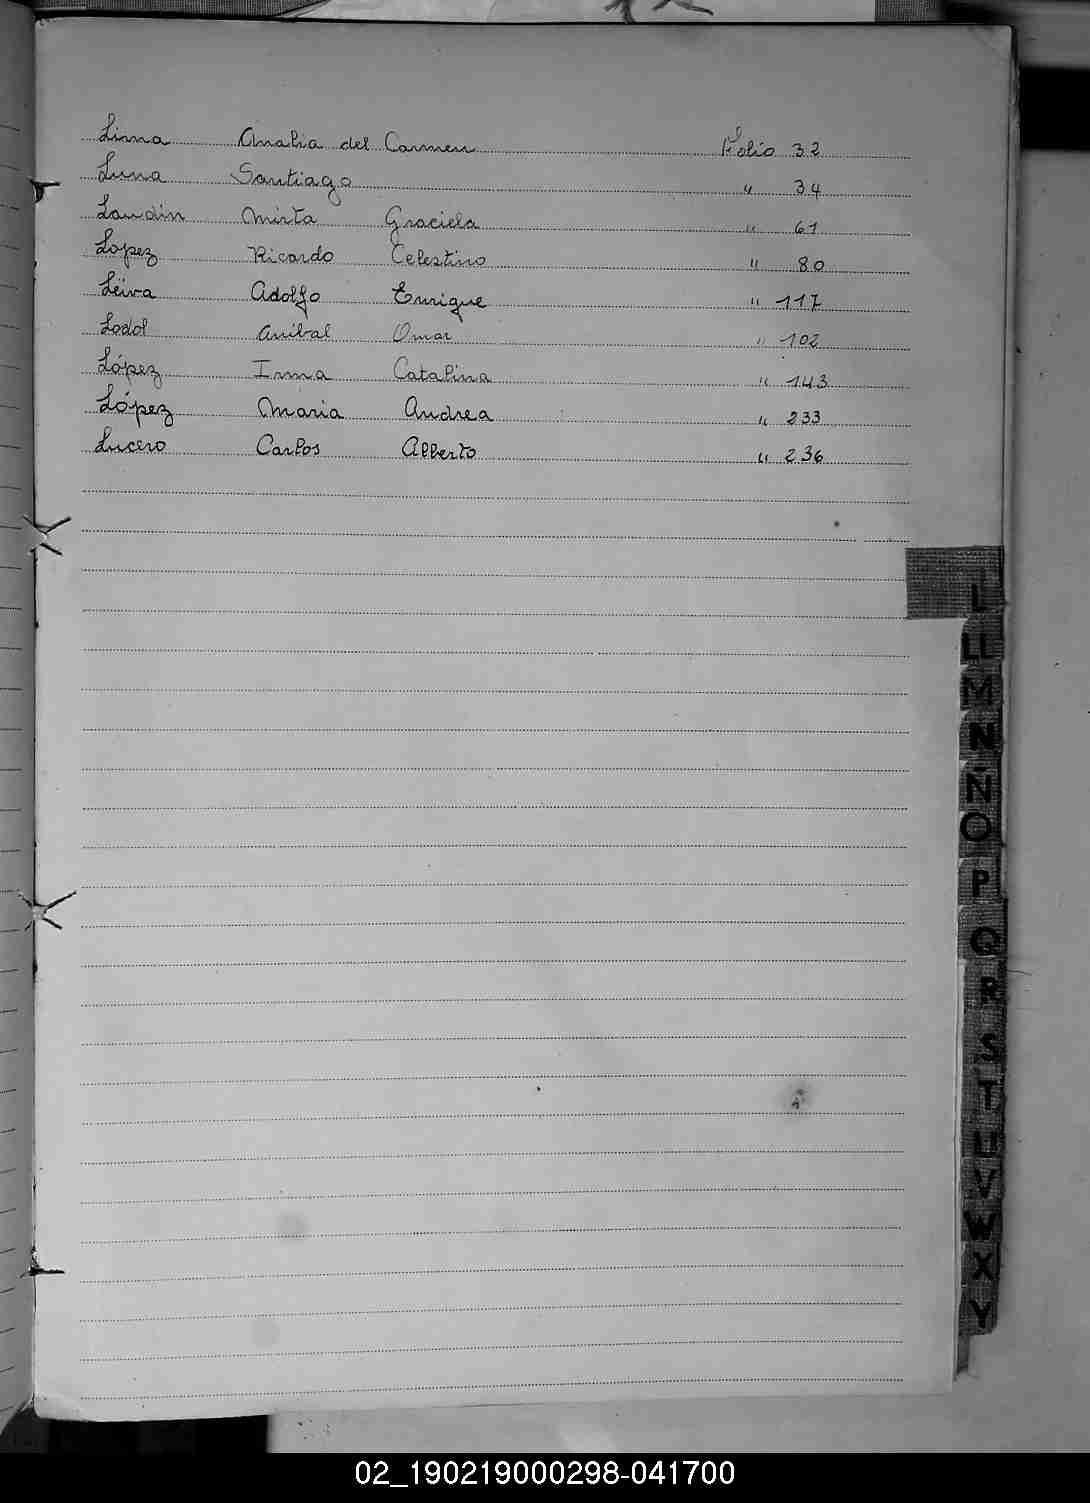 Lima Analia del Carmen Folio 32
Luna Santiago " 34
Landin Mirta Graciela " 61
Lopez Ricardo Celestino " 80
Leiva Adolfo Enrique " 117
Lodol Anibal Omar " 102
López Irma Catalina " 143
López Maria Andrea " 233
Lucero Carlos Alberto " 236
L
LL
M
N
Ñ
O
P
Q
R
S
T
U
V
W
X
Y
02_190219000298-041700